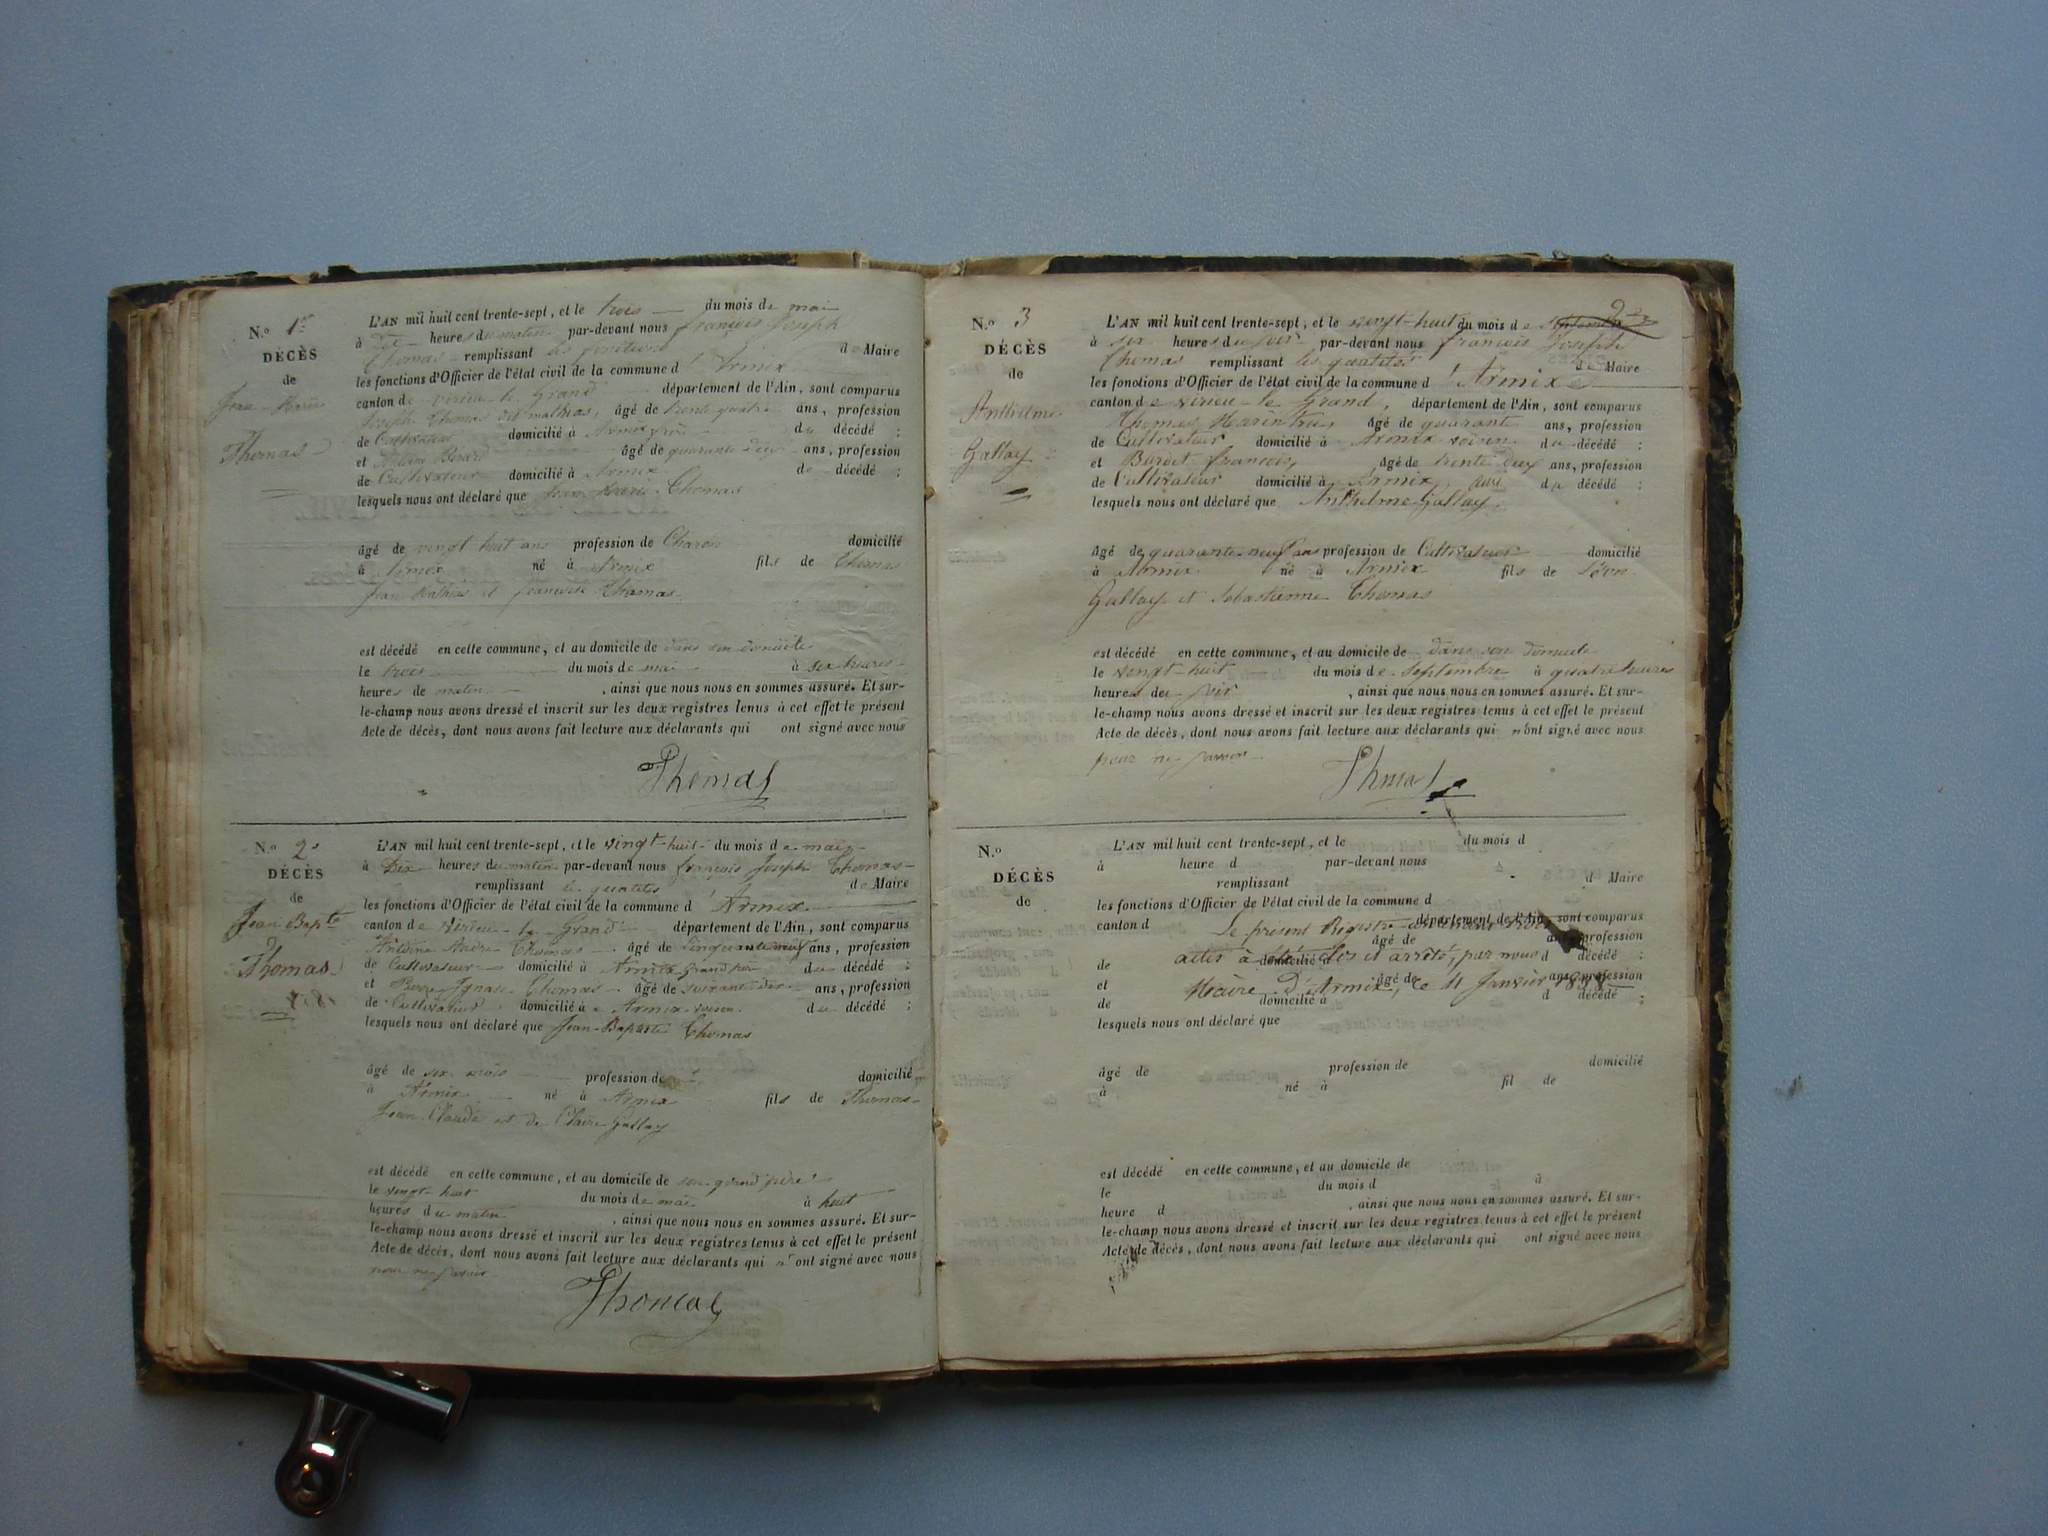 N.o 1er
DÉCÈS
de
Jean-Marie
Thomas
L'AN mil huit cent trente-sept, et le trois du mois de mai
à heures du matin par-devant nous françois Joseph
Thomas remplissant les fonctions de Maire
les fonctions d'Officier de l'état civil de la commune d'Armix
canton de virieu-le-Grand département de l'Ain, sont comparus
Joseph Thomas mathias, âgé de trente quatre ans, profession
de Cultivateur domicilié à Armix du décédé ;
et Benard âgé de quarante deux ans, profession
de Cultivateur domicilié à Armix de décédé ;
lesquels nous ont déclaré que Jean Marie Thomas
âgé de vingt huit ans profession de domicilié
à Armix né à Armix fils de Thomas
Jean Mathias et françoise Thomas
est décédé en cette commune, et au domicile de dans son domicile
le trois du mois de mai à six heures
heures de matin, ainsi que nous nous en sommes assuré. Et sur-
le-champ nous avons dressé et inscrit sur les deux registres tenus à cet effet le présent
Acte de décès, dont nous avons fait lecture aux déclarants qui ont signé avec nous
Thomas
N.o 2
DÉCÈS
de
Jean Bapte
Thomas
L'AN mil huit cent trente-sept, et le vingt-huit du mois de mai
à Dix heures du matin par-devant nous françois Joseph Thomas
remplissant les quatités de Maire
les fonctions d'Officier de l'état civil de la commune d'Armix
canton de Virieu-le-Grand département de l'Ain, sont comparus
Antoine André Thomas âgé de Cinquante neuf ans, profession
de Cultivateur domicilié à Armix Grand père du décédé ;
et Pierre Ignace Thomas âgé de soixante dix ans, profession
de Cultivateur domicilié à Armix voisin du décédé ;
lesquels nous ont déclaré que Jean-Baptiste Thomas
âgé de six mois profession de domicilié
à Armix né à Armix fils de Thomas
Jean Claude et de Claire Gallay
est décédé en cette commune, et au domicile de son grand père
le vingt-huit du mois de mai à huit
heures du matin, ainsi que nous nous en sommes assuré. Et sur-
le-champ nous avons dressé et inscrit sur les deux registres tenus à cet effet le présent
Acte de décès, dont nous avons fait lecture aux déclarants qui n'ont signé avec nous
pour ne savoir
Thomas
N.o 3
DÉCÈS
de
Anthelme
Gallay
L'AN mil huit cent trente-sept, et le vingt-huit du mois de septembre
à six heures du soir par-devant nous françois Joseph
Thomas remplissant les quatités de Maire
les fonctions d'Officier de l'état civil de la commune d'Armix
canton de virieu-le-Grand, département de l'Ain, sont comparus
Thomas âgé de quarante ans, profession
de Cultivateur domicilié à Armix voisin du décédé ;
et Burdet françois, âgé de trente deux ans, profession
de Cultivateur domicilié à Armix, du décédé ;
lesquels nous ont déclaré que Anthelme Gallay
âgé de quarante-neuf ans profession de Cultivateur domicilié
à Armix né à Armix fils de
Gallay et Sébastienne Thomas
est décédé en cette commune, et au domicile de dans son domicile
le vingt-huit du mois de Septembre à quatre heures
heures du soir, ainsi que nous nous en sommes assuré. Et sur-
le-champ nous avons dressé et inscrit sur les deux registres tenus à cet effet le présent
Acte de décès, dont nous avons fait lecture aux déclarants qui n'ont signé avec nous
pour ne savoir
Thomas
N.o
DÉCÈS
de
L'AN mil huit cent trente-sept, et le du mois d
à heure d par-devant nous
remplissant d Maire
les fonctions d'Officier de l'état civil de la commune d
canton d département de l'Ain, sont comparus
Le présent Registre trois
âgé de ans, profession
actes à été clos et arrêté, par nous
de domicilié à d décédé ;
et âgé de ans, profession
Maire d'Armix, ce 11 Janvier 1838
de domicilié à d décédé ;
lesquels nous ont déclaré que
âgé de profession de domicilié
à né à fil de
est décédé en cette commune, et au domicile de
le du mois d à
heure d, ainsi que nous nous en sommes assuré. Et sur-
le-champ nous avons dressé et inscrit sur les deux registres tenus à cet effet le présent
Acte de décès, dont nous avons fait lecture aux déclarants qui ont signé avec nous